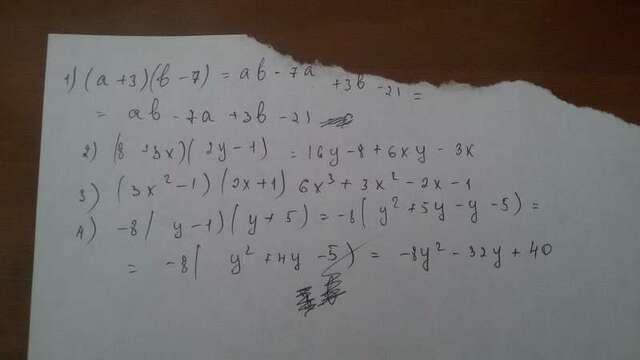 1) (a+3)(b-7) = ab - 7a + 3b - 21 =
= ab - 7a + 3b - 21
2) (8+3x)(2y-1) = 16y-8+6xy-3x
3) (3x²-1)(2x+1) 6x³+3x²-2x-1
4) -8(y-1)(y+5) = -8(y²+5y-y-5) =
= -8(y²+4y-5) = -8y²-32y+40